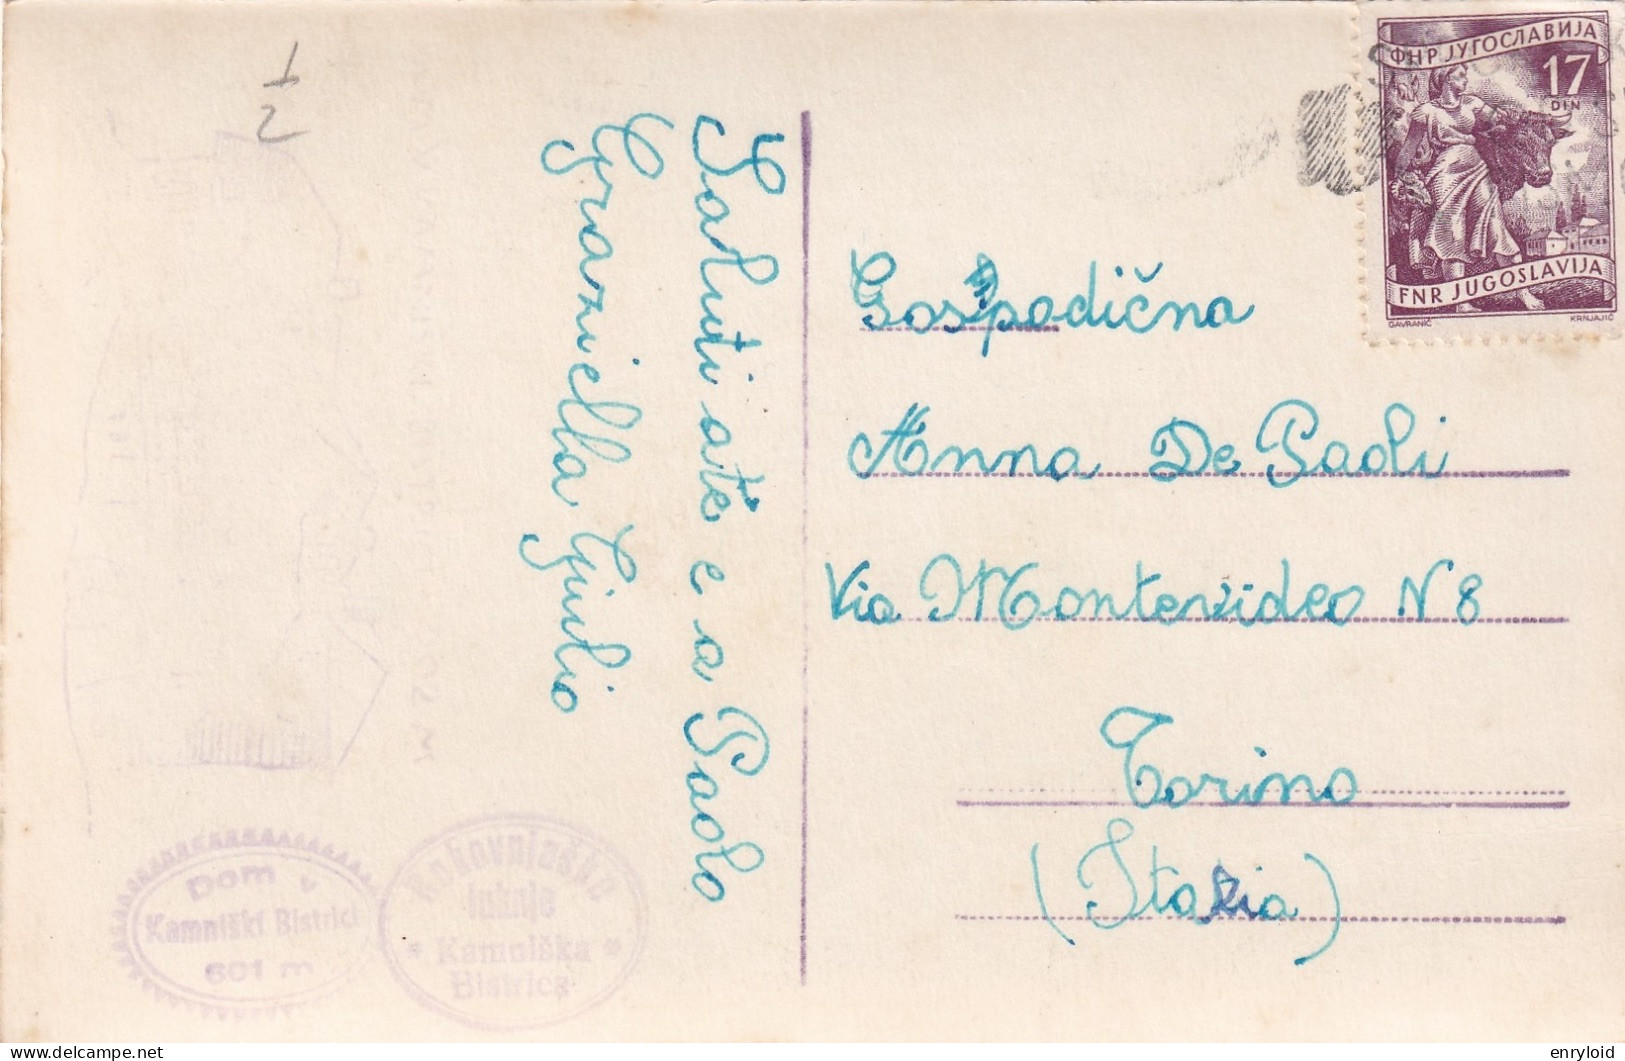 1
2
Saluti a te e a Paolo
Graziella Giulio
ФНР ЈУГОСЛАВИЈА
17
DIN
FNR JUGOSLAVIJA
GAVRANIĆ KRNJAJIĆ
Gospodična
Anna De Paoli
Via Montevideo N 8
Torino
(Italia)
Dom v
Kamniški Bistrici
601 m
Rokovnjaške
luknje
* Kamniška *
Bistrica
enryloid